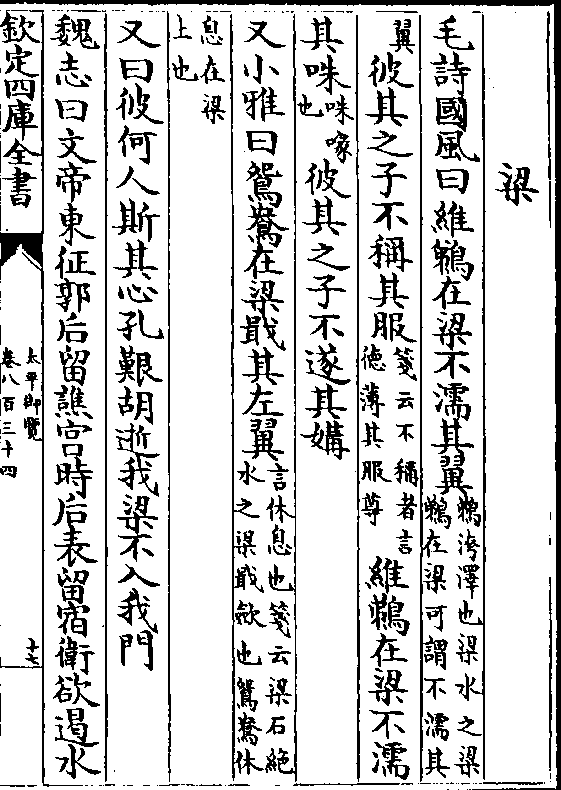 梁
毛詩國風曰維鵜在梁不濡其翼鵜洿澤也梁水之梁鵜在梁可謂不濡其
翼彼其之子不稱其服箋云不稱者言德薄其服尊維鵜在梁不濡
其咮咮喙也彼其之子不遂其媾
又小雅曰鴛鴦在梁戢其左翼言休息也箋云梁石絶水之梁戢歛也鴛鴦休
息在梁上也
又曰彼何人斯其心孔艱胡逝我梁不入我門
魏志曰文帝東征郭后留譙宫時后表留宿衛欲遏水
欽定四庫全書
太平御覽
卷八百三十四
十七